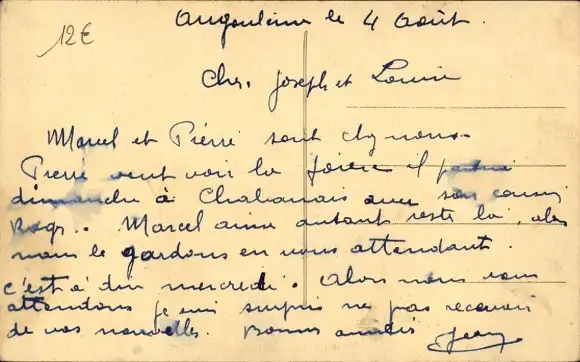 12€
Angoulême le 4 Août.
Chers Joseph et Louise
Marcel et Pierre sont chez nous.
Pierre veut voir la foire il
dimanche à Chabanais avec son cousin
Roger. Marcel aime autant reste là, alors
nous le gardons en vous attendant.
c'est à dire mercredi. Alors nous vous
attendons je suis surpris ne pas recevoir
de vos nouvelles. Bonnes amitiés Jean